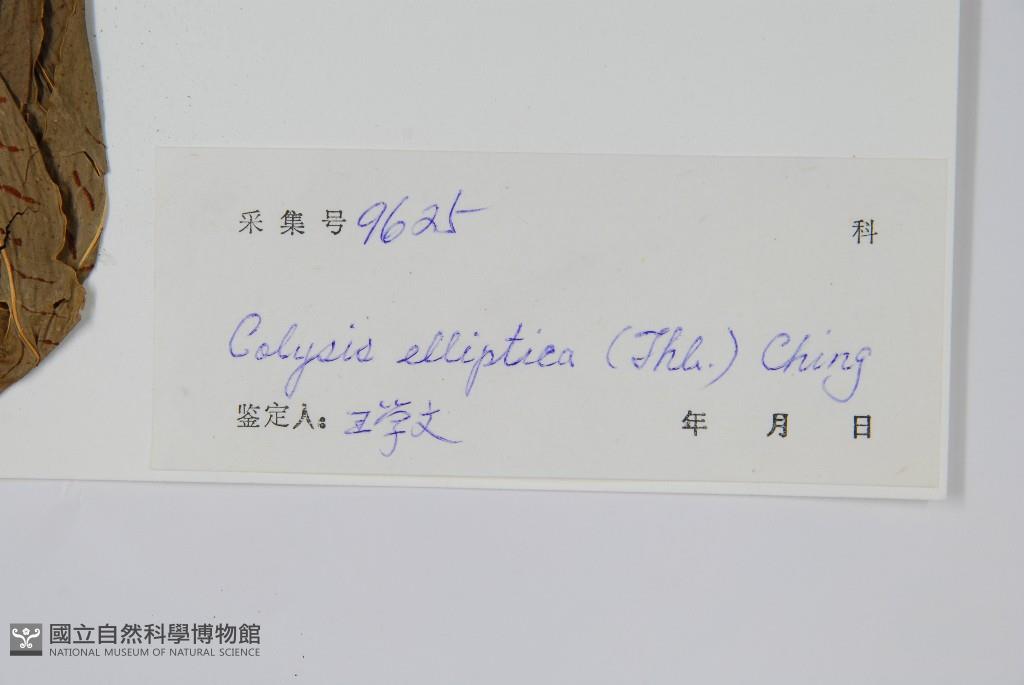 采集号 9625 科
Colysis elliptica (Thb.) Ching
鉴定人: 王学文 年 月 日
國立自然科學博物館
NATIONAL MUSEUM OF NATURAL SCIENCE